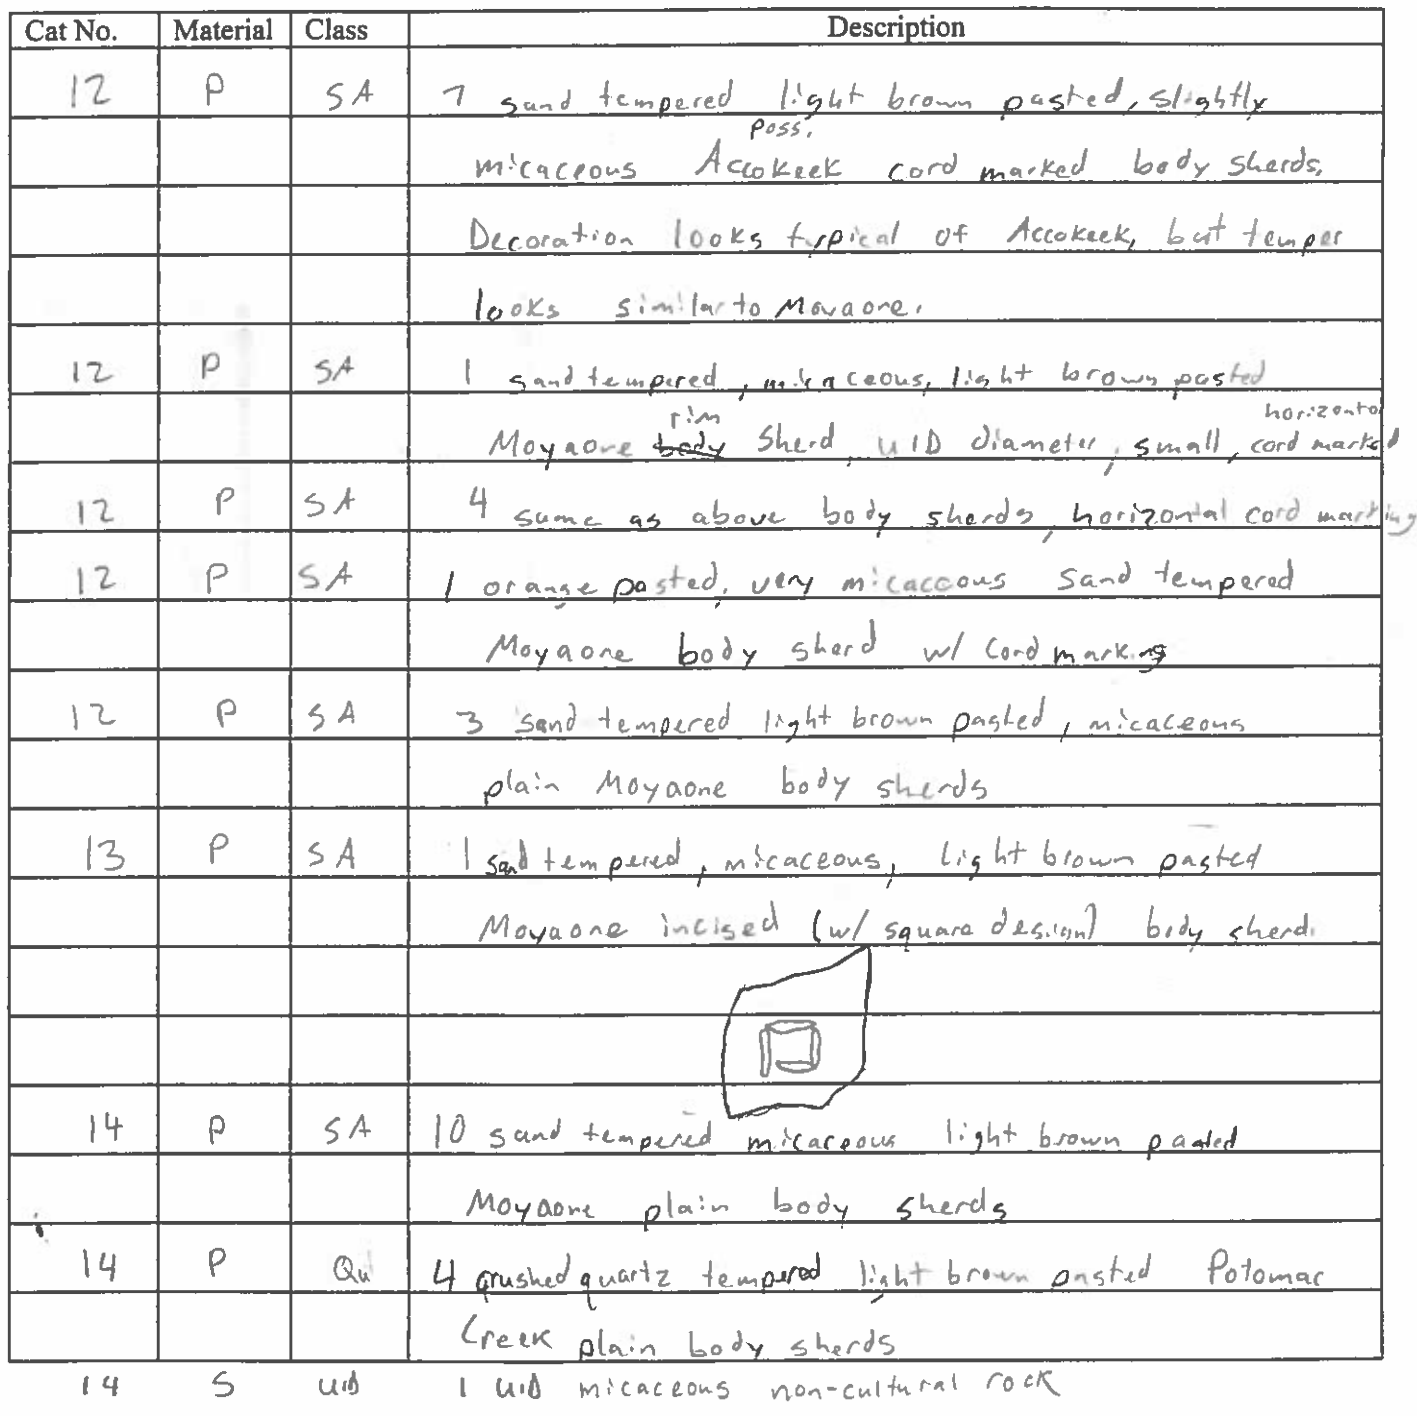 Cat No. Material Class Description
12 P SA 7 sand tempered light brown pasted, slightly
poss.
micaceous Accokeek cord marked body sherds.
Decoration looks typical of Accokeek, but temper
looks similar to Moyaone.
12 P SA 1 sand tempered, micaceous, light brown pasted
rim horizontal
Moyaone body sherd, UID diameter, small, cord marked
12 P SA 4 same as above body sherds, horizontal cord marking
12 P SA 1 orange pasted, very micaceous sand tempered
Moyaone body sherd w/ cord marking
12 P SA 3 sand tempered light brown pasted, micaceous
plain Moyaone body sherds
13 P SA 1 sand tempered, micaceous, light brown pasted
Moyaone incised (w/ square design) body sherd.
14 P SA 10 sand tempered micaceous light brown pasted
Moyaone plain body sherds
14 P Qu 4 crushed quartz tempered light brown pasted Potomac
Creek plain body sherds
14 S UID 1 UID micaceous non-cultural rock